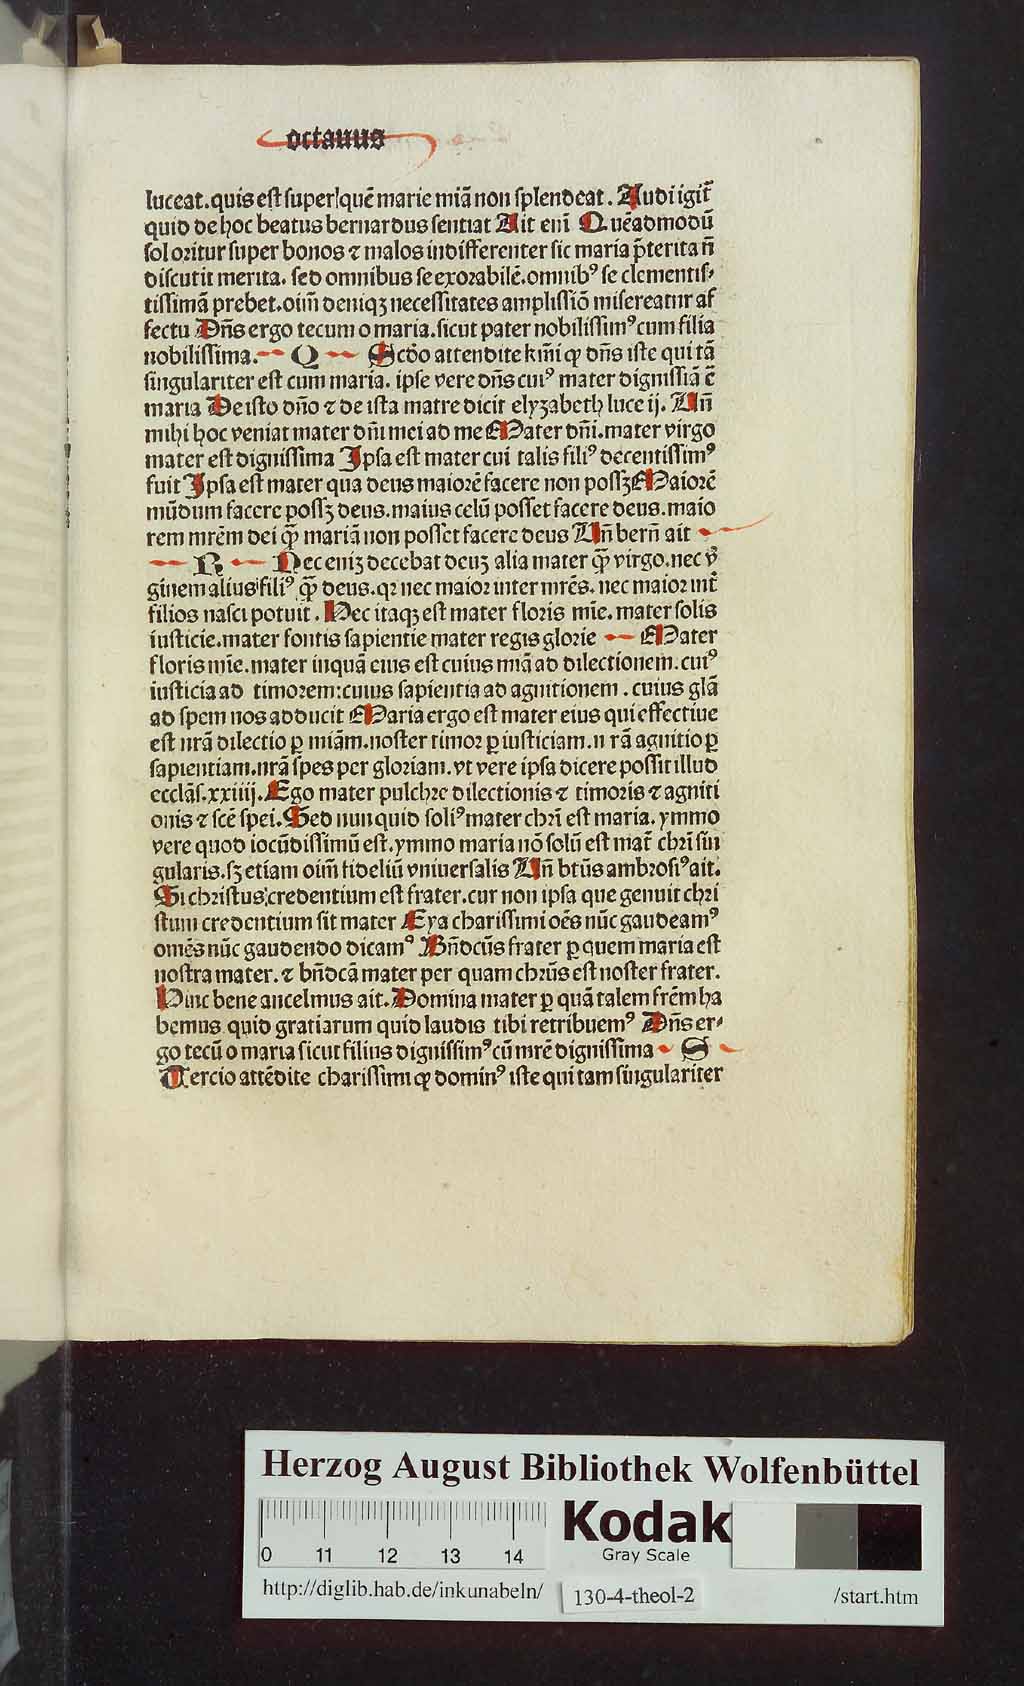 octauus
luceat.quis est super quē marie miā non splendeat. Audi igit̄
quid de hoc beatus bernardus sentiat Ait eni Quēadmodū
sol oritur super bonos ⁊ malos indifferenter sic maria p̄terita n̄
discutit merita. sed omnibus se exorabilē.omnibꝰ se clementis⸗
tissimā prebet.oim̄ deniqꝫ necessitates amplissiō misereatur af
fectu Dn̄s ergo tecum o maria.sicut pater nobilissimꝰ cum filia
nobilissima. Q Scdo attendite kmi ꝙ dn̄s iste qui tā
singulariter est cum maria. ipse vere dn̄s cuiꝰ mater dignissiā ē
maria De isto dn̄o ⁊ de ista matre dicit elyzabeth luce ij. Un̄
mihi hoc veniat mater dn̄i mei ad me Mater dn̄i.mater virgo
mater est dignissima Ipsa est mater cui talis filiꝰ decentissimꝰ
fuit Ipsa est mater qua deus maiorē facere non possꝫ Maiorē
mūdum facere possꝫ deus.maius celū posset facere deus.maio
rem mrēm dei ꝙ̄ mariā non posset facere deus Un̄ bern̄ ait
R Nec eniꝫ decebat deuꝫ alia mater ꝙ̄ virgo.nec v̄
ginem alius filiꝰ ꝙ̄ deus.qꝛ nec maior inter mrēs. nec maior int̄
filios nasci potuit. Hec itaqꝫ est mater floris mīe.mater solis
iusticie.mater fontis sapientie mater regis glorie Mater
floris mīe.mater inquā eius est cuius miā ad dilectionem.cuiꝰ
iusticia ad timorem:cuius sapientia ad agnitionem.cuius glā
ad spem nos adducit Maria ergo est mater eius qui effectiue
est nrā dilectio ꝑ miām.noster timor ꝑ iusticiam.n rā agnitio ꝑ
sapientiam.nrā spes per gloriam.vt vere ipsa dicere possit illud
ecclās.xxiiij.Ego mater pulchre dilectionis ⁊ timoris ⁊ agniti
onis ⁊ scē spei.Sed nunquid soliꝰ mater chri est maria. ymmo
vere quod iocūdissimū est.ymmo maria nō solū est mat̄ chri sin
gularis.sꝫ etiam oim̄ fideliū vniuersalis Un̄ btūs ambrosiꝰ ait.
Si christus credentium est frater.cur non ipsa que genuit chri
stum credentium sit mater Eya charissimi oēs nūc gaudeamꝰ
omēs nūc gaudendo dicamꝰ Bn̄dcūs frater ꝑ quem maria est
nostra mater.⁊ bn̄dcā mater per quam chrūs est noster frater.
Hinc bene ancelmus ait.Domina mater ꝑ quā talem frēm ha
bemus quid gratiarum quid laudis tibi retribuemꝰ Dn̄s er⸗
go tecū o maria sicut filius dignissimꝰ cū mrē dignissima S
Tercio attēdite charissimi ꝙ dominꝰ iste qui tam singulariter
Herzog August Bibliothek Wolfenbüttel
0 11 12 13 14
Kodak
Gray Scale
http://diglib.hab.de/inkunabeln/ 130-4-theol-2 /start.htm